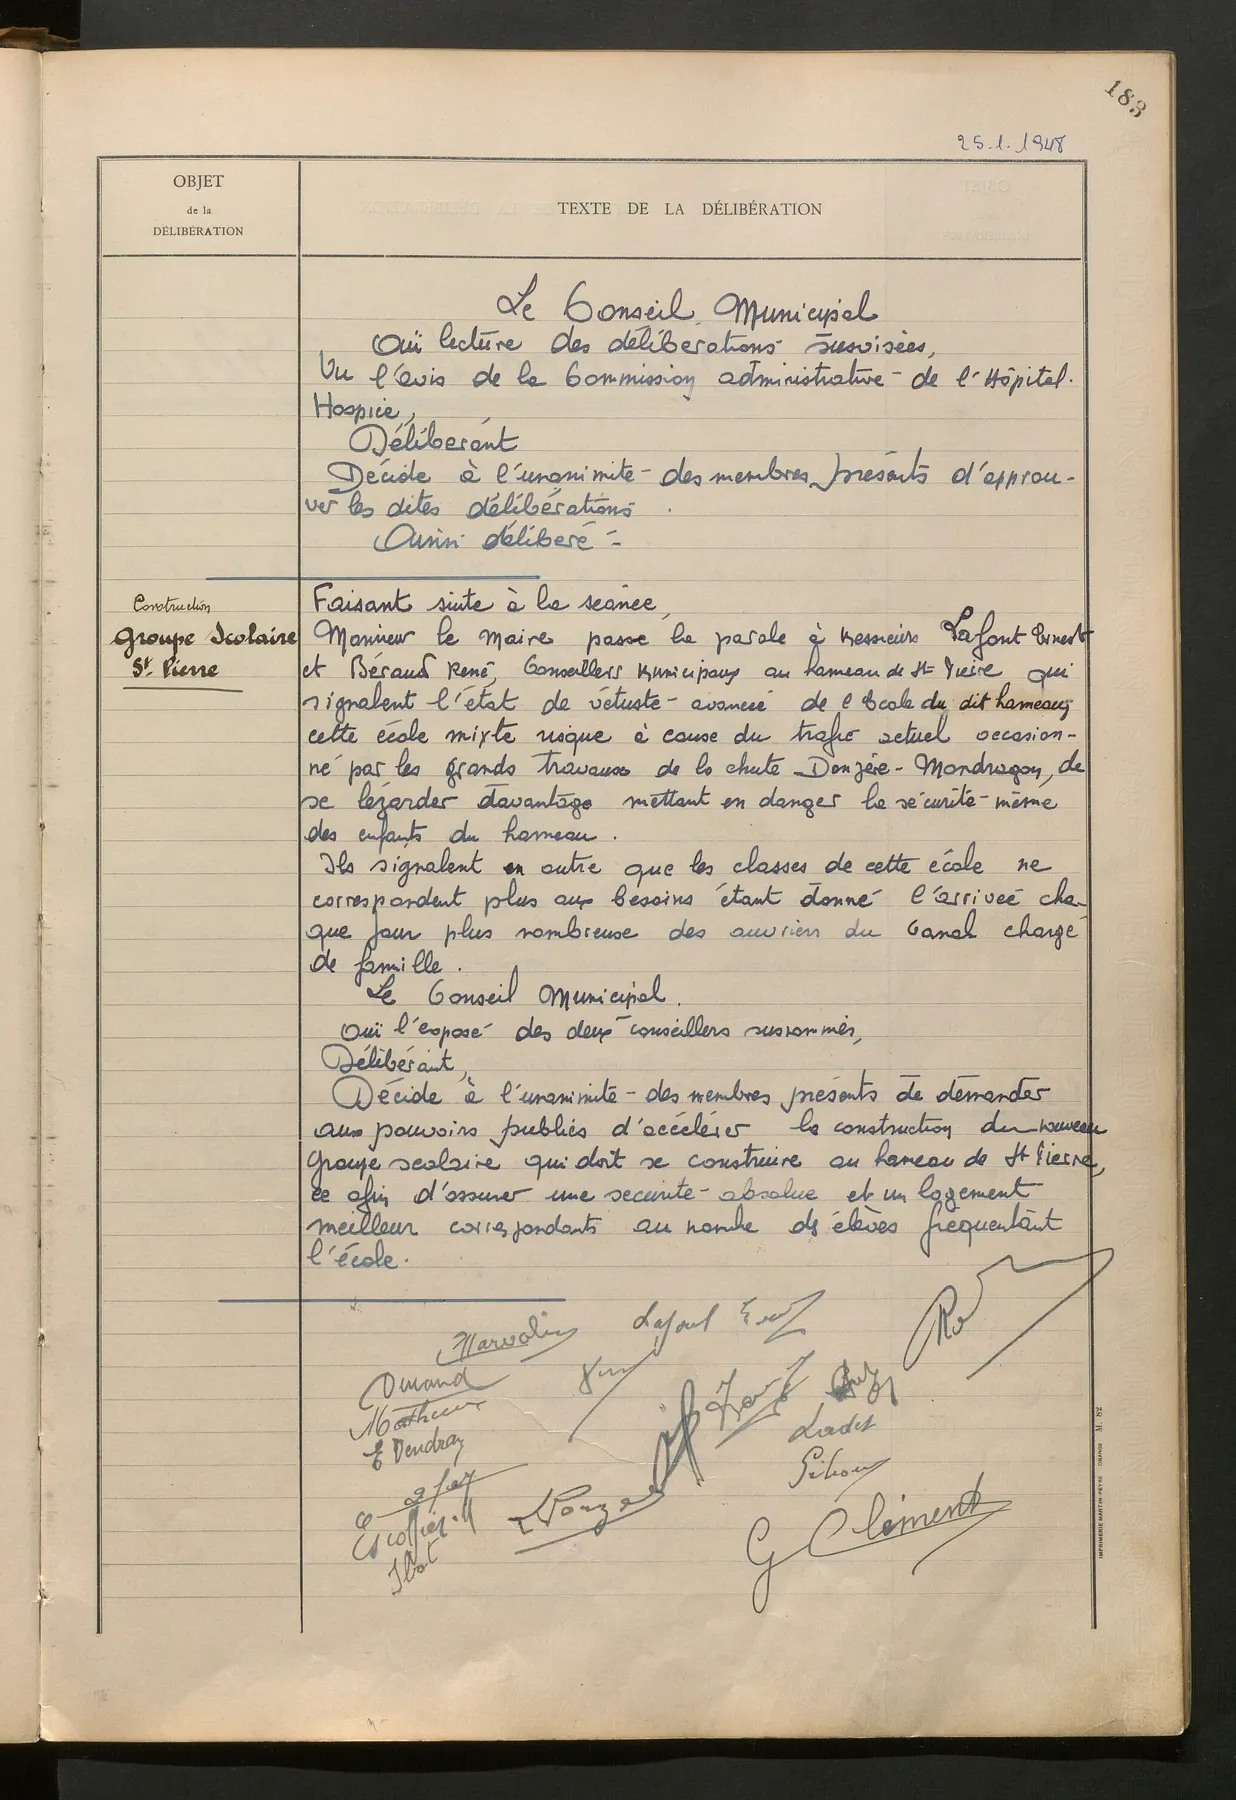 183
25.1.1948
OBJET
de la
DÉLIBÉRATION
TEXTE DE LA DÉLIBÉRATION
Le Conseil Municipal
Ouï lecture des délibérations susvisées,
Vu l'avis de la Commission administrative de l'Hôpital.
Hospice,
Délibérant
Décide à l'unanimité des membres présents d'approu-
ver les dites délibérations.
Ainsi délibéré =
Construction
Groupe Scolaire
St Pierre
Faisant suite à la séance,
Monsieur le Maire passe la parole à Messieurs Lafont Ernest
et Béraud René, Conseillers Municipaux au hameau de St Pierre qui
signalent l'état de vétusté avancé de l'Ecole du dit hameau,
cette école mixte risque à cause du trafic actuel occasion-
né par les grands travaux de la chute Donzère-Mondragon, de
se lézarder davantage mettant en danger la sécurité même
des enfants du hameau.
Ils signalent en outre que les classes de cette école ne
correspondent plus aux besoins étant donné l'arrivée cha-
que jour plus nombreuse des ouvriers du Canal chargé
de famille.
Le Conseil Municipal.
Ouï l'exposé des deux conseillers susnommés,
Délibérant,
Décide à l'unanimité des membres présents de demander
aux pouvoirs publics d'accélérer la construction du nouveau
Groupe scolaire qui doit se construire au hameau de St Pierre,
ce afin d'assurer une sécurité absolue et un logement
meilleur correspondants au nombre des élèves fréquentant
l'école.
Lafont
Durand
Mathieu
E Vendran
Ladet
Escoffier
G Clément
IMPRIMERIE MARTIN-PEYRE ORANGE M. 82